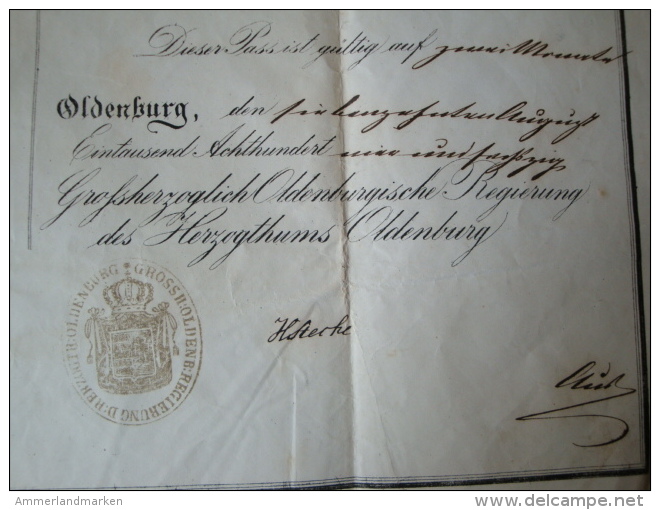 Dieser Pass ist gültig auf zwei Monate
Oldenburg, den siebenzehnten August
Eintausend Achthundert vier und sechzig
Großherzoglich Oldenburgische Regierung
des Herzogthums Oldenburg
GROSSH: OLDENB: REGIERUNG D: HERZOGTH: OLDENBURG
Ammerlandmarken
www.delcampe.net